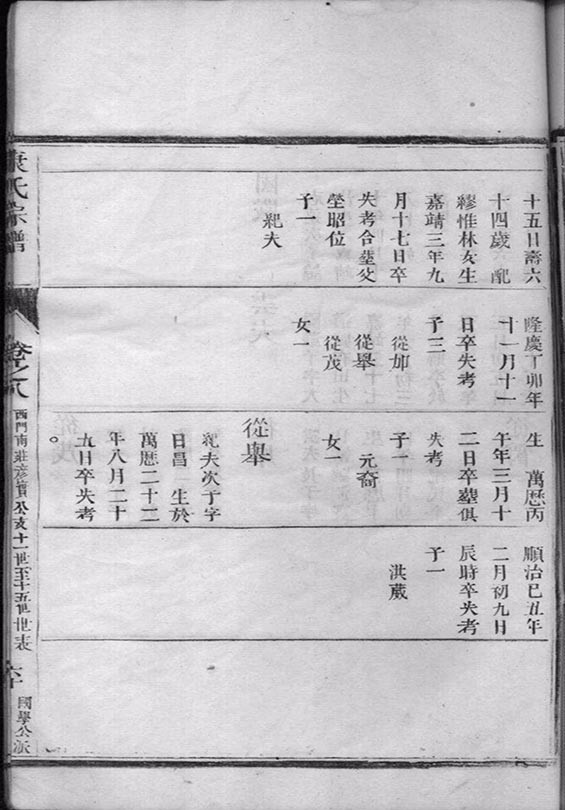 十五日壽六
十四歲 配
繆惟林女生
嘉靖三年九
月十七日卒
失考合塟父
塋昭位
子一
䎩夫
隆慶丁卯年
十一月十一
日卒失考
子三
從加
從舉
從茂
女一
生 萬厯丙
午年三月十
二日卒塟俱
失考
子一
元裔
女一
從舉
䎩夫次子字
日昌 生於
萬厯二十二
年八月二十
五日卒失考
順治己丑年
二月初九日
辰時卒失考
子一
洪葳
氏宗譜
卷之八
西門南莊彥實公支十一世至十五世世表
六十
國學公派